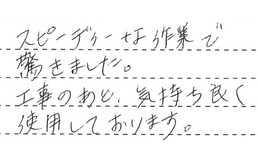 スピーディーな作業で
驚きました。
工事のあと、気持ち良く
使用しております。